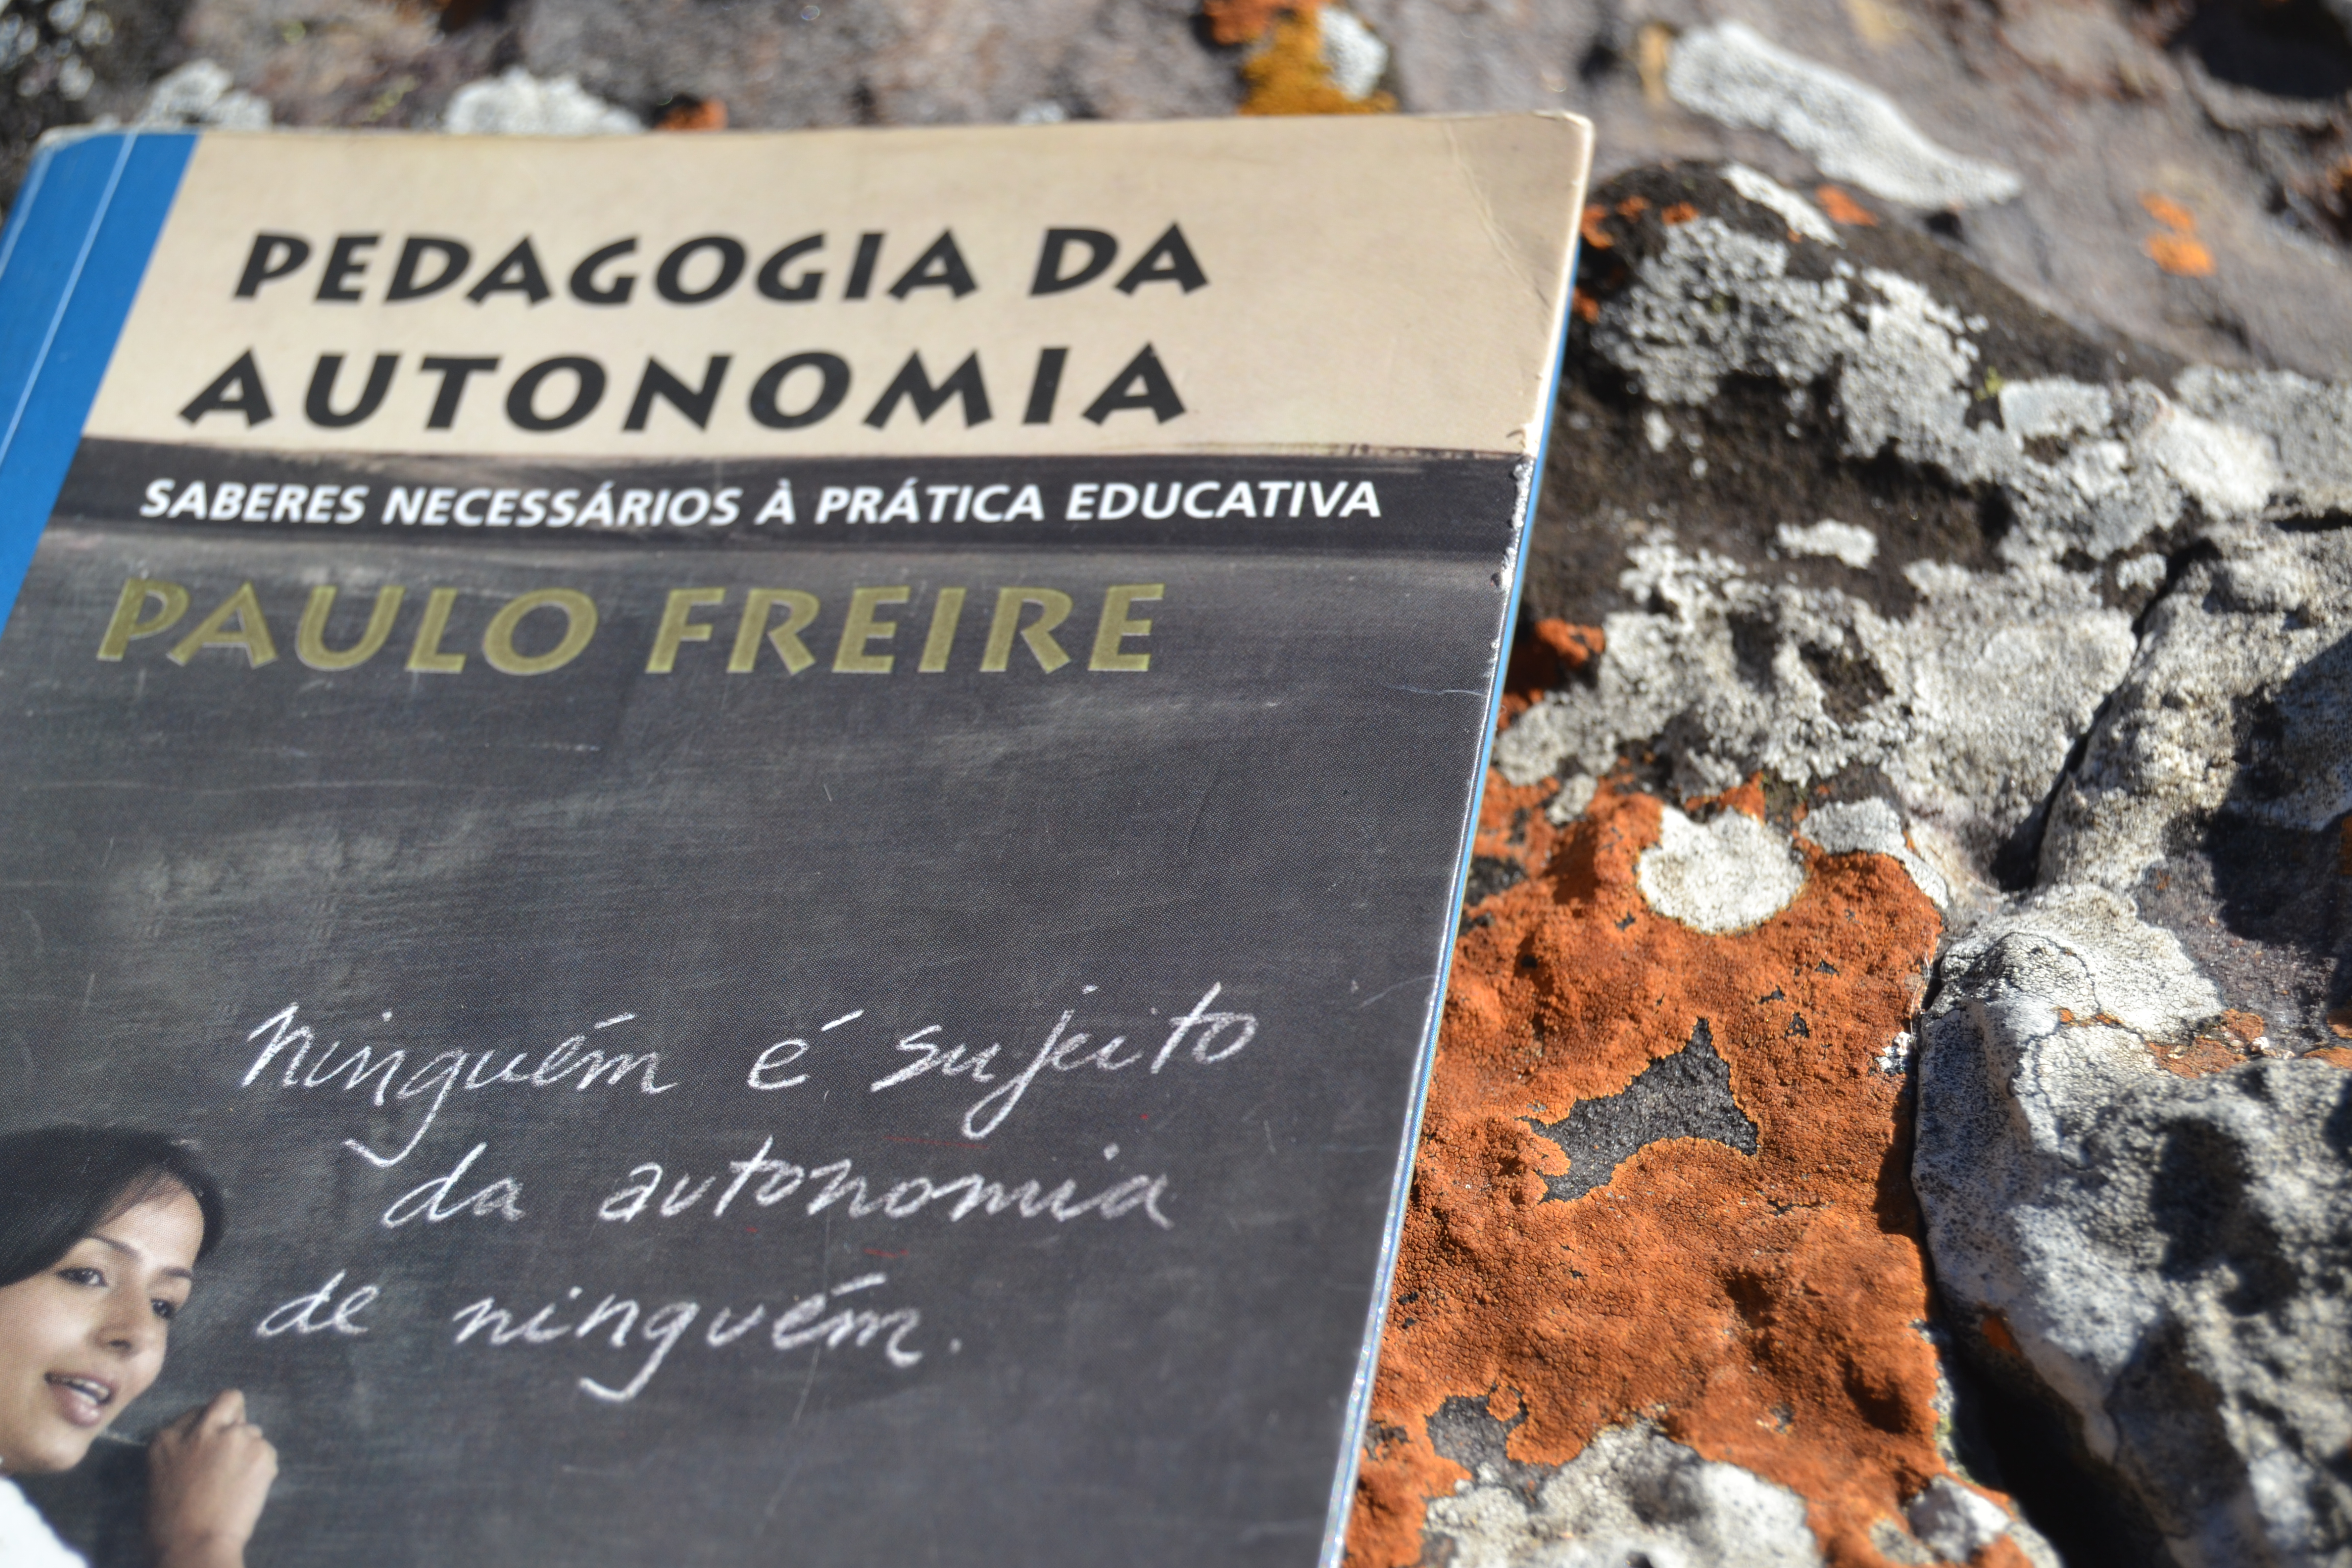 PEDAGOGIA DA
AUTONOMIA
SABERES NECESSÁRIOS À PRÁTICA EDUCATIVA
PAULO FREIRE
ninguém é sujeito
da autonomia
de ninguém.